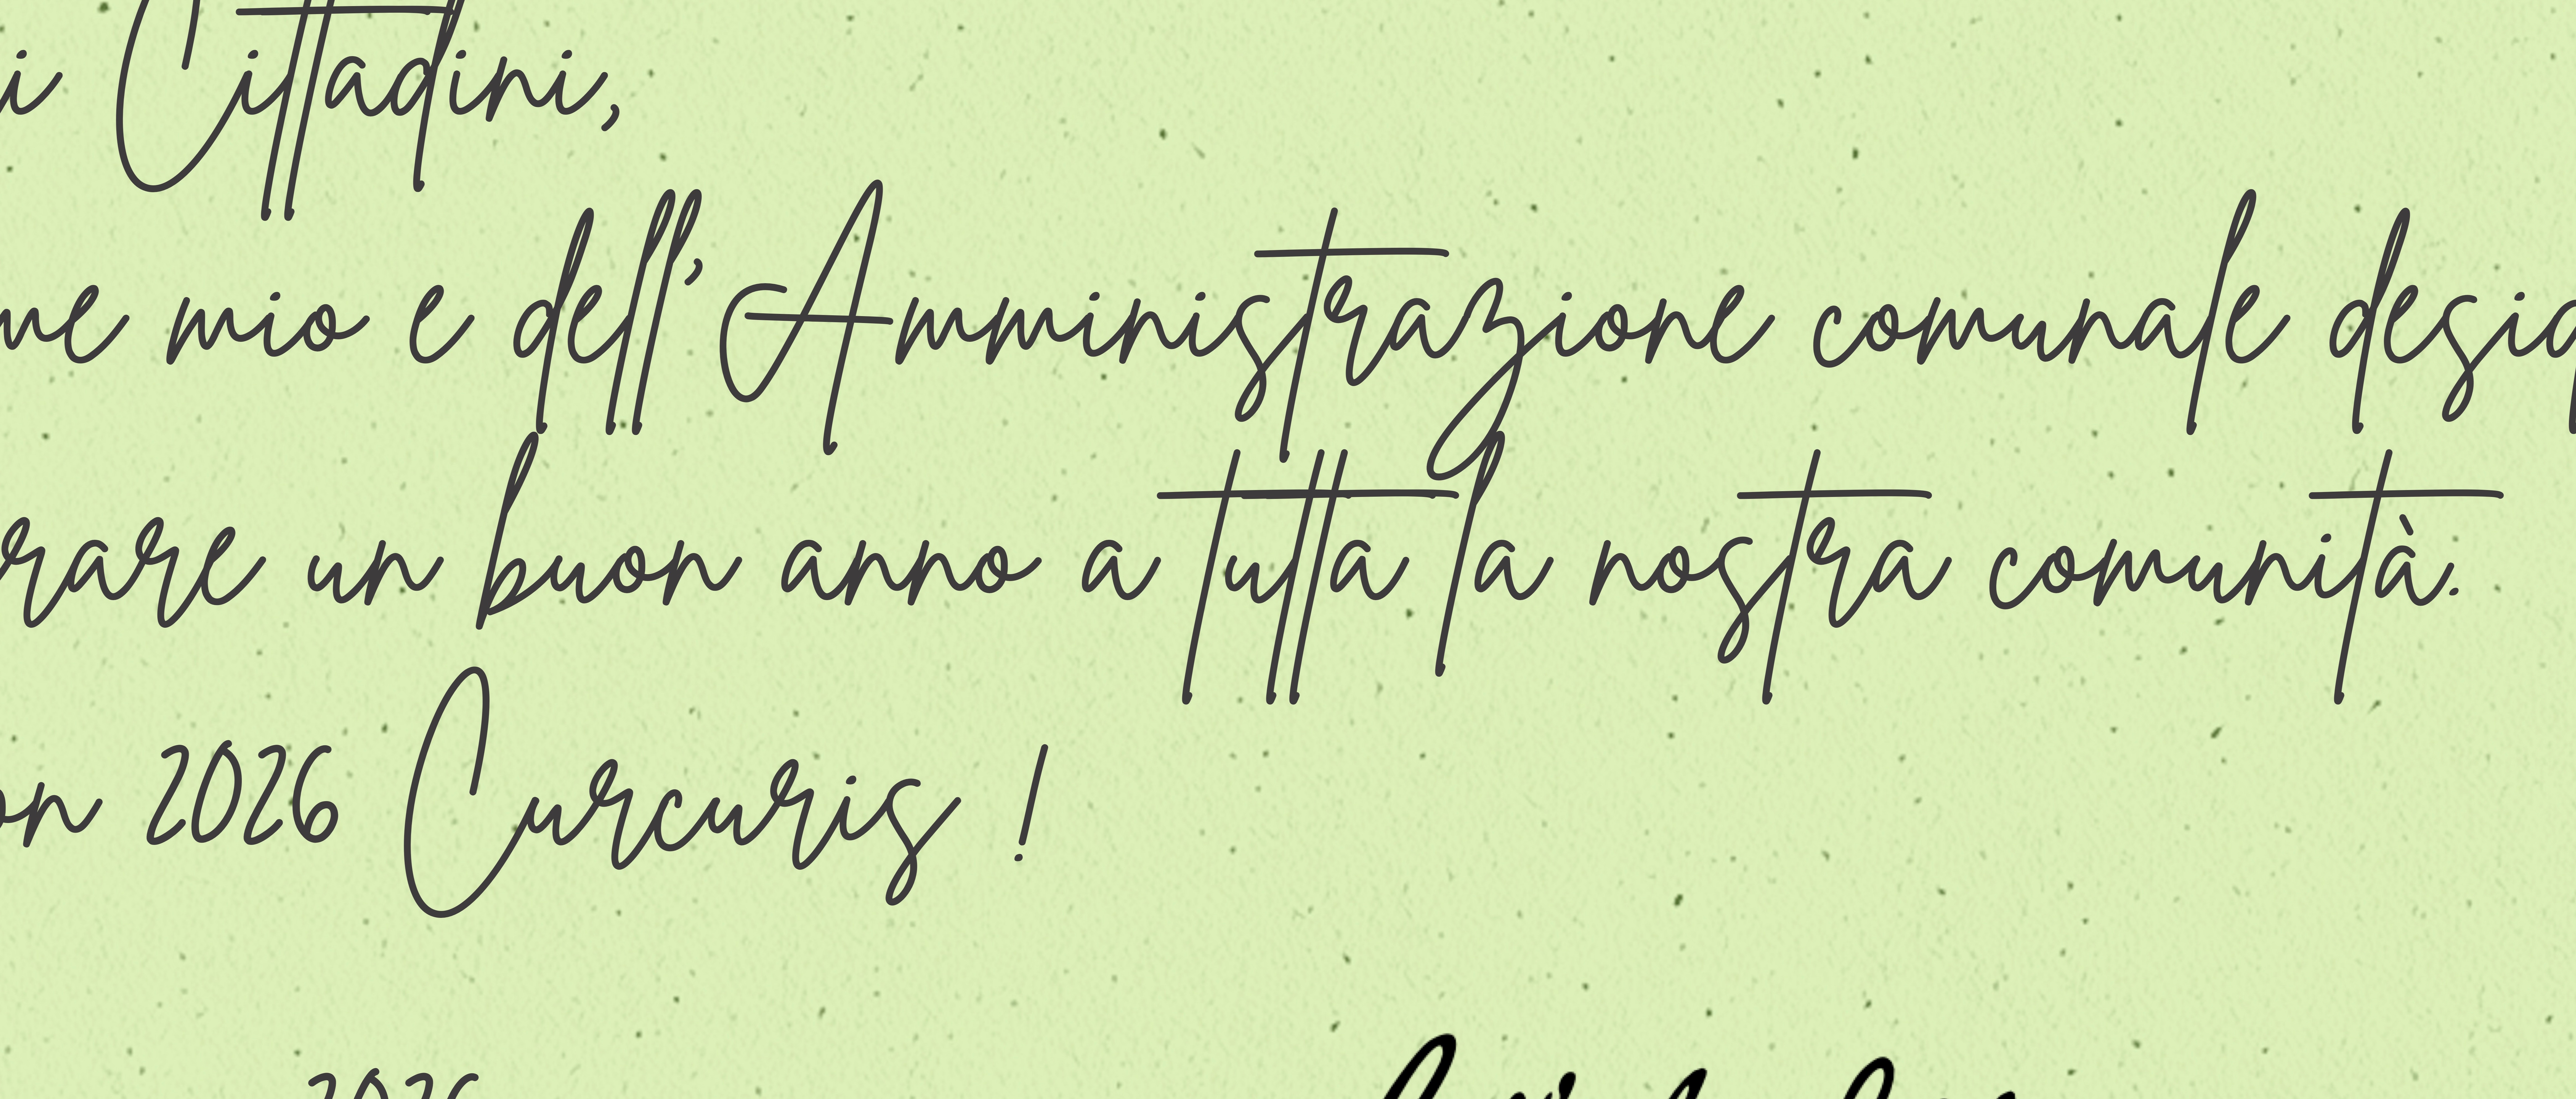 i Cittadini,
me mio e dell'Amministrazione comunale desid
rare un buon anno a tutta la nostra comunità.
on 2026 Curcuris !
2026